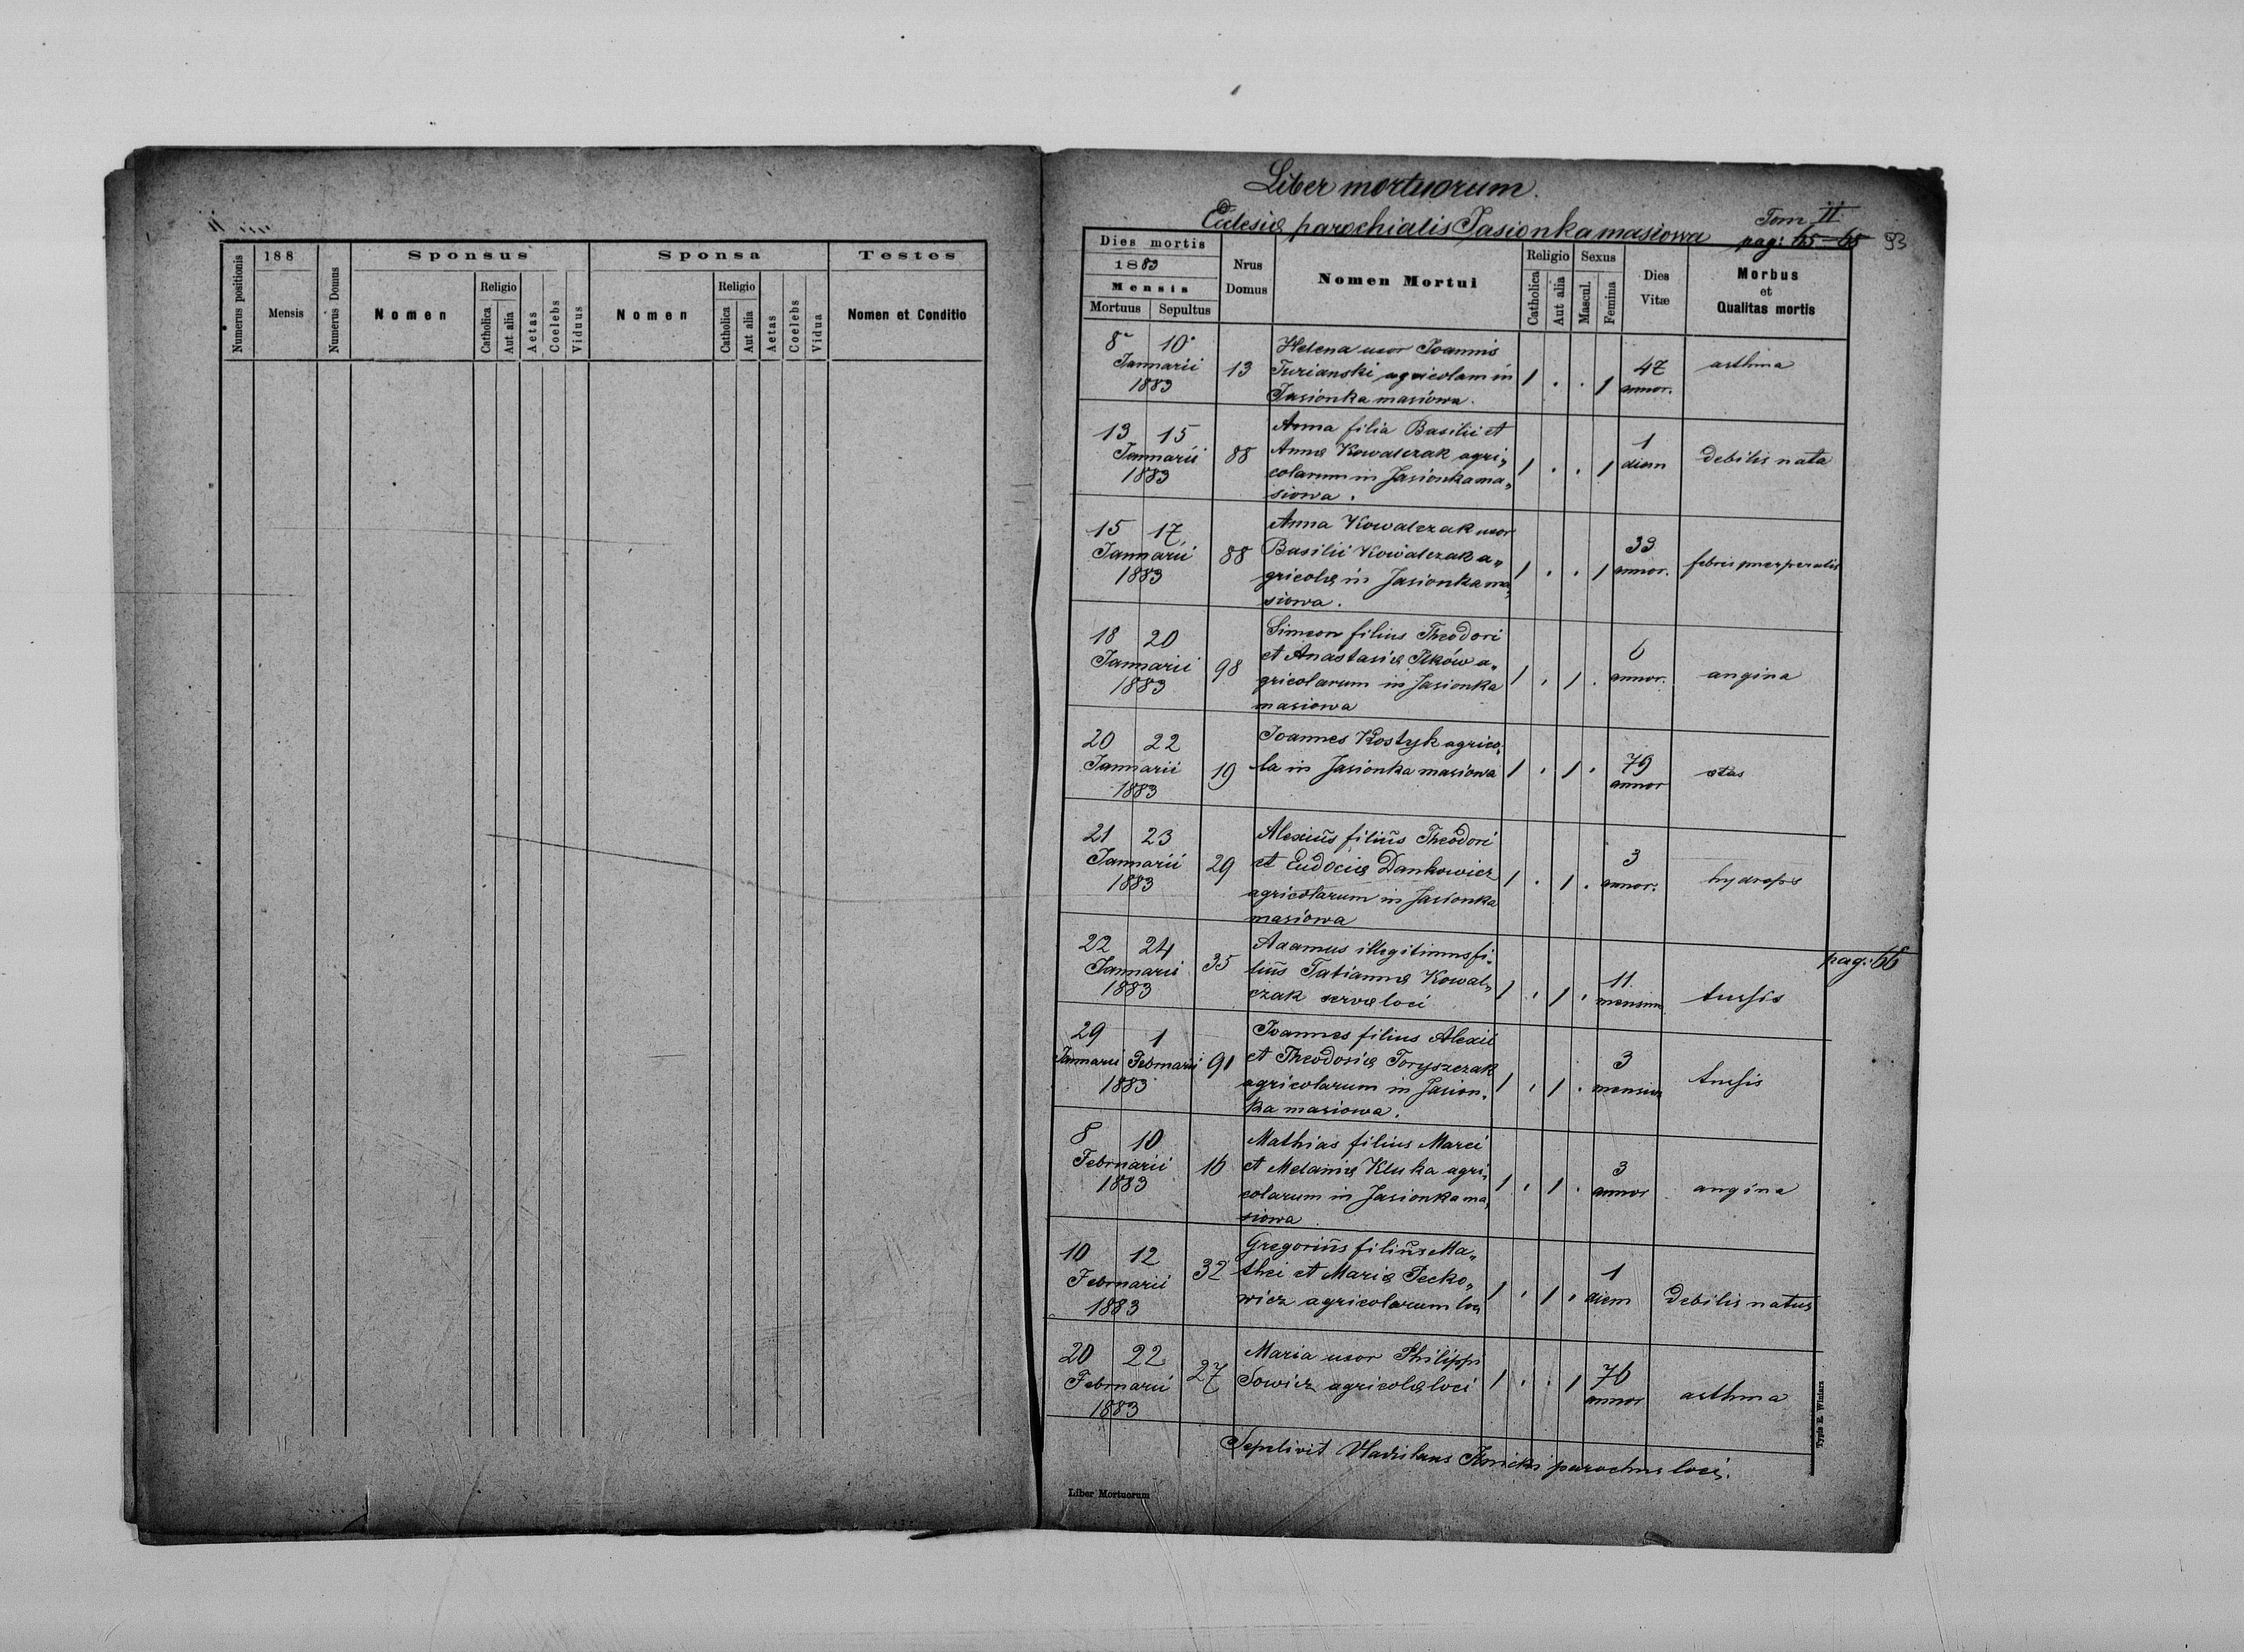 188
Sponsus
Sponsa
Testes
Numerus positionis
Mensis
Numerus Domus
Nomen
Religio
Catholica
Aut alia
Aetas
Coelebs
Viduus
Nomen
Religio
Catholica
Aut alia
Aetas
Coelebs
Vidua
Nomen et Conditio
Liber mortuorum.
Eclesiæ parochialis Jasionka masiowa
Tom II
pag: 65-65
93
Dies mortis
1883
Mensis
Mortuus
Sepultus
Nrus
Domus
Nomen Mortui
Religio
Catholica
Aut alia
Sexus
Mascul.
Femina
Dies
Vitæ
Morbus
et
Qualitas mortis
8 10
Januarii
1883
13
Helena uxor Joannis
Turianski agricolam in
Jasionka masiowa.
1 . . 1
47
annor.
asthma
13 15
Januarii
1883
88
Anna filia Basilii et
Annæ Kowalczak agri„
colarum in Jasionka ma„
siowa.
1 . . 1
1
diem
debilis nata
15 17
Januarii
1883
88
Anna Kowalczak uxor
Basilii Kowalczak a„
gricolæ in Jasionka ma„
siowa.
1 . . 1
33
annor.
febris puerperalis
18 20
Januarii
1883
98
Simeon filius Theodori
et Anastasiæ Ilków a„
gricolarum in Jasionka
masiowa
1 . 1 .
6
annor.
angina
20 22
Januarii
1883
19
Joannes Kostyk agrico„
la in Jasionka masiowa
1 . 1 .
79
annor
ætas
21 23
Januarii
1883
29
Alexius filius Theodori
et Eudociæ Dankowicz
agricolarum in Jasionka
masiowa
1 . 1 .
3
annor.
hydrops
22 24
Januarii
1883
35
Adamus illegitimus fi„
lius Tatiannæ Kowal„
czak servæ loci
1 . 1 .
11
mensium
tussis
pag: 66
29 1
Januarii Februarii
1883
91
Joannes filius Alexii
et Theodosiæ Toryszczak
agricolarum in Jasion„
ka masiowa.
1 . 1 .
3
mensium
tussis
8 10
Februarii
1883
16
Mathias filius Marci
et Melaniæ Kluka agri„
colarum in Jasionka ma„
siowa
1 . 1 .
3
annor
angina
10 12
Februarii
1883
32
Gregorius filius Ma„
thei et Mariæ Pecko„
wicz agricolarum loci
1 . 1 .
1
diem
debilis natus
20 22
Februarii
1883
27
Maria uxor Philippi
Sowicz agricolæ loci
1 . . 1
76
annor
asthma
Sepelivit Vladislaus parochus loci.
Liber Mortuorum
Typis E. Winiarz